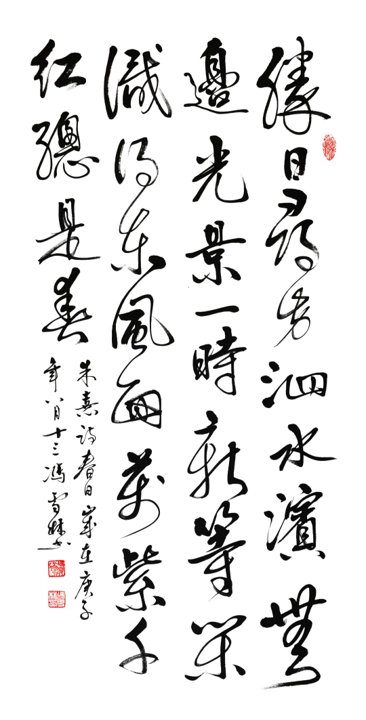 勝日尋芳泗水濱無
邊光景一時新等閒
識得東風面萬紫千
紅總是春
朱熹詩春日歲在庚子
年八月十三馮雪林